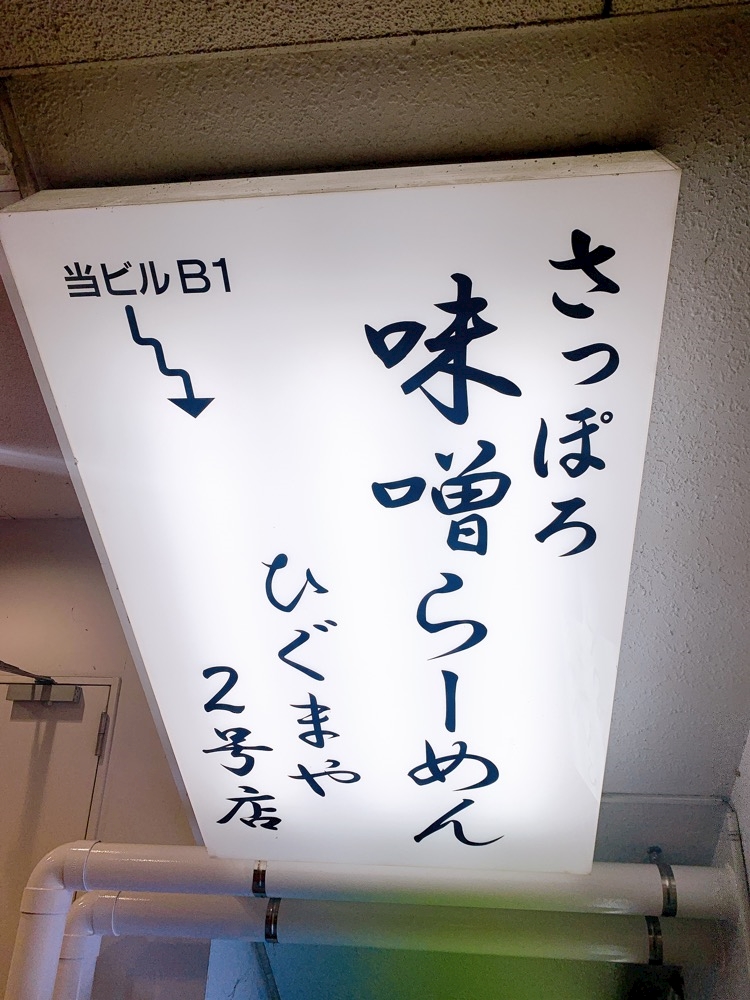 さっぽろ
味噌らーめん
ひぐまや
2号店
当ビルB1